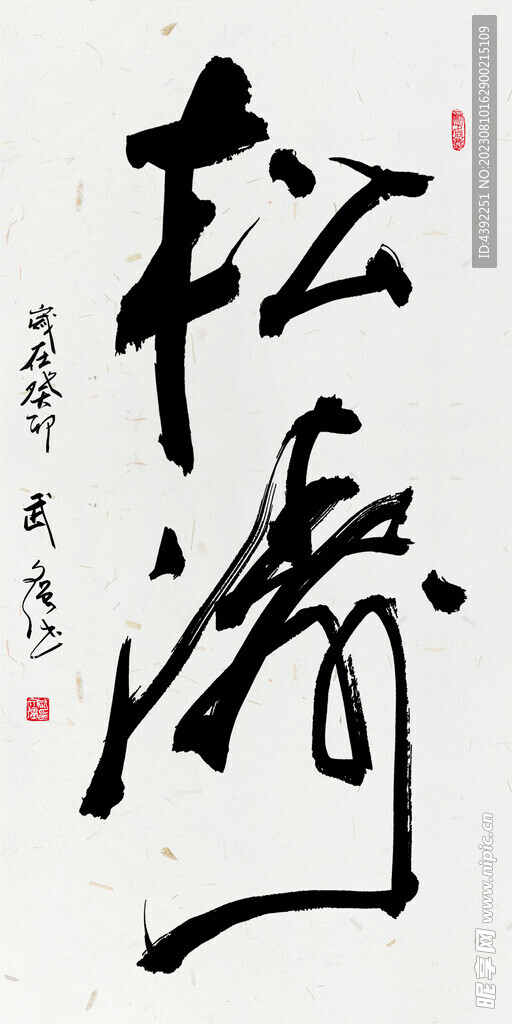 松涛
岁在癸卯 武
ID:4392251 NO:20230810162900215109
昵享网 www.nipic.cn